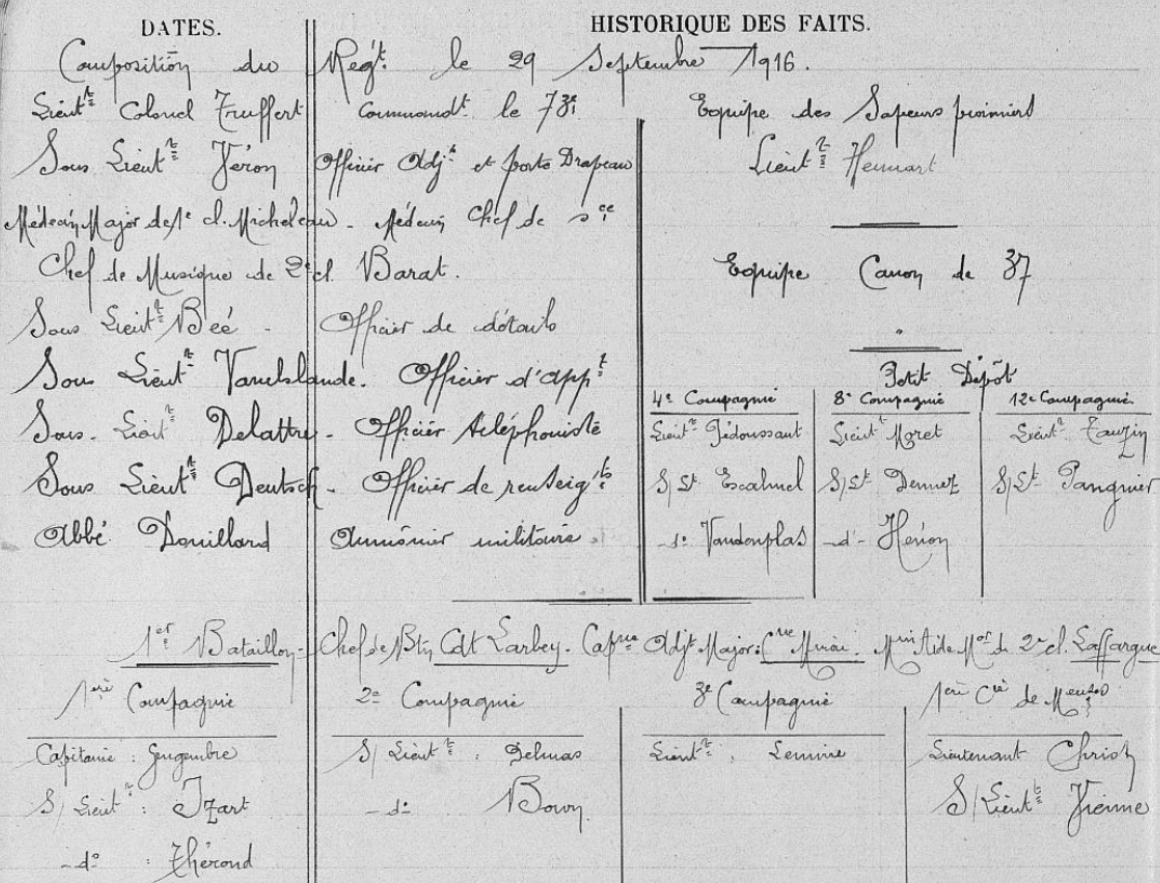 DATES. HISTORIQUE DES FAITS.
Composition du Régt. le 29 Septembre 1916.
Lieutt Colonel Truffert commandt. le 73e.
Sous Lieutt Véron Officier Adjt et porte Drapeau
Médecin Major de 1e cl. Micheleau - Médecin Chef de sce
Chef de Musique de 2e cl. Barat.
Sous Lieutt Beé - Officier de détails
Sous Lieutt Officier d'appt
Sous-Lieutt Delattre - Officier téléphoniste
Sous Lieutt Deutsch - Officier de renseigts
Abbé Douillard Aumônier militaire.
Equipe des Sapeurs pionniers
Lieutt Hennart
Equipe Canon de 37
"
Petit Dépôt
4e Compagnie 8e Compagnie 12e Compagnie
Lieutt Jédoussaut Lieutt Moret Lieutt Tauzin
S/Lt S/Lt S/Lt Pangnier
-do- -do- Hénon
1er Bataillon - Chef de Btn Cdt Larbey. Capne Adjt Major: Cne Min Aide Mor de 2e cl. Laffargue
1ère Compagnie 2e Compagnie 3e Compagnie 1ère Cie de Meuses
Capitaine : Gengembre S/Lieutt : Delmas Lieutt : Lemire Lieutenant Christy
S/Lieutt : Izart -do- S/Lieutt Vienne
-do : Thérond